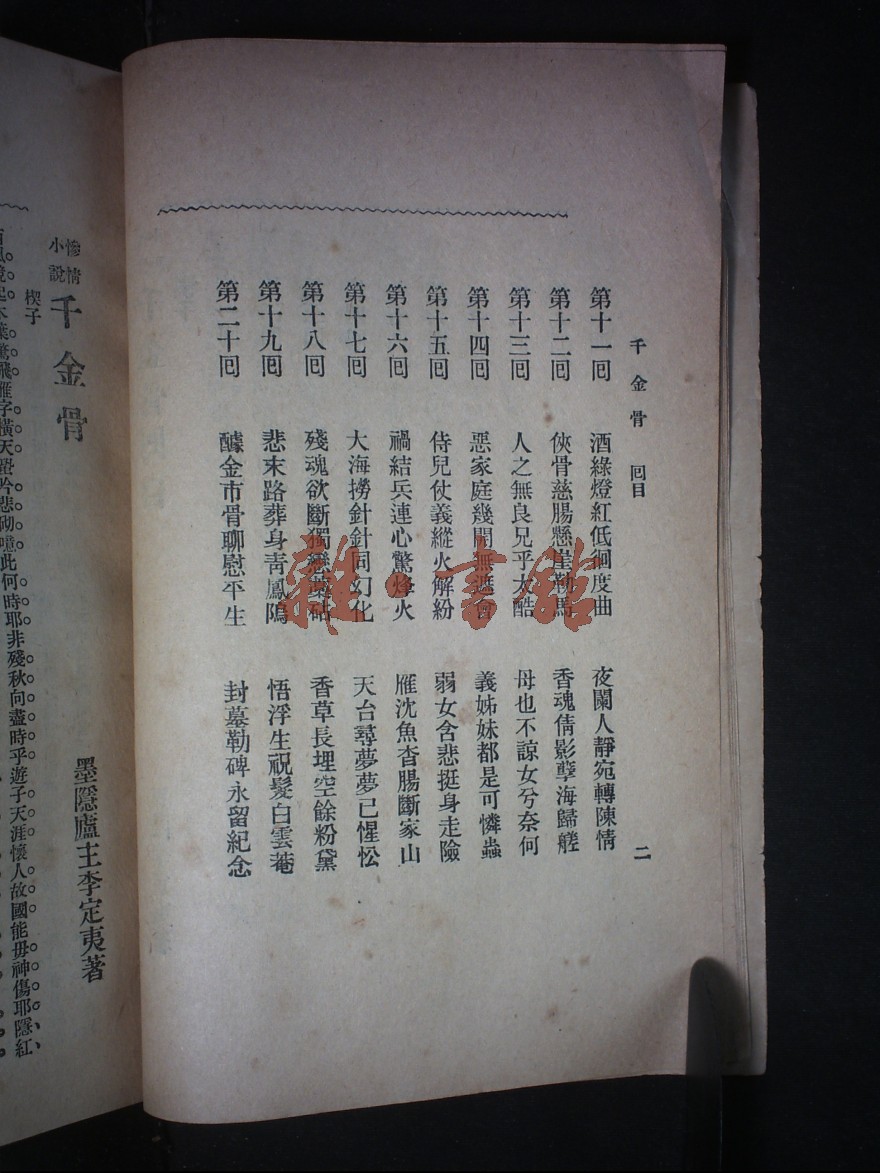 千金骨 回目 二
第十一回 酒綠燈紅低徊度曲 夜闌人靜宛轉陳情
第十二回 俠骨慈腸懸崖勒馬 香魂倩影孽海歸艖
第十三回 人之無良兄乎太酷 母也不諒女兮奈何
第十四回 惡家庭幾開無遮會 義姊妹都是可憐蟲
第十五回 侍兒仗義縱火解紛 弱女含悲挺身走險
第十六回 禍結兵連心驚烽火 雁沈魚杳腸斷家山
第十七回 大海撈針針同幻化 天台尋夢夢已惺忪
第十八回 殘魂欲斷獨戀藁砧 香草長埋空餘粉黛
第十九回 悲末路葬身靑鳳塢 悟浮生祝髮白雲菴
第二十回 醵金市骨聊慰平生 封墓勒碑永留紀念
雜·書館
慘情小說 千金骨
墨隱廬主李定夷著
楔子
木葉驚飛雁字橫天蛩吟悲砌噫此何時耶非殘秋向盡時乎遊子天涯懷人故國能毋神傷耶隱紅